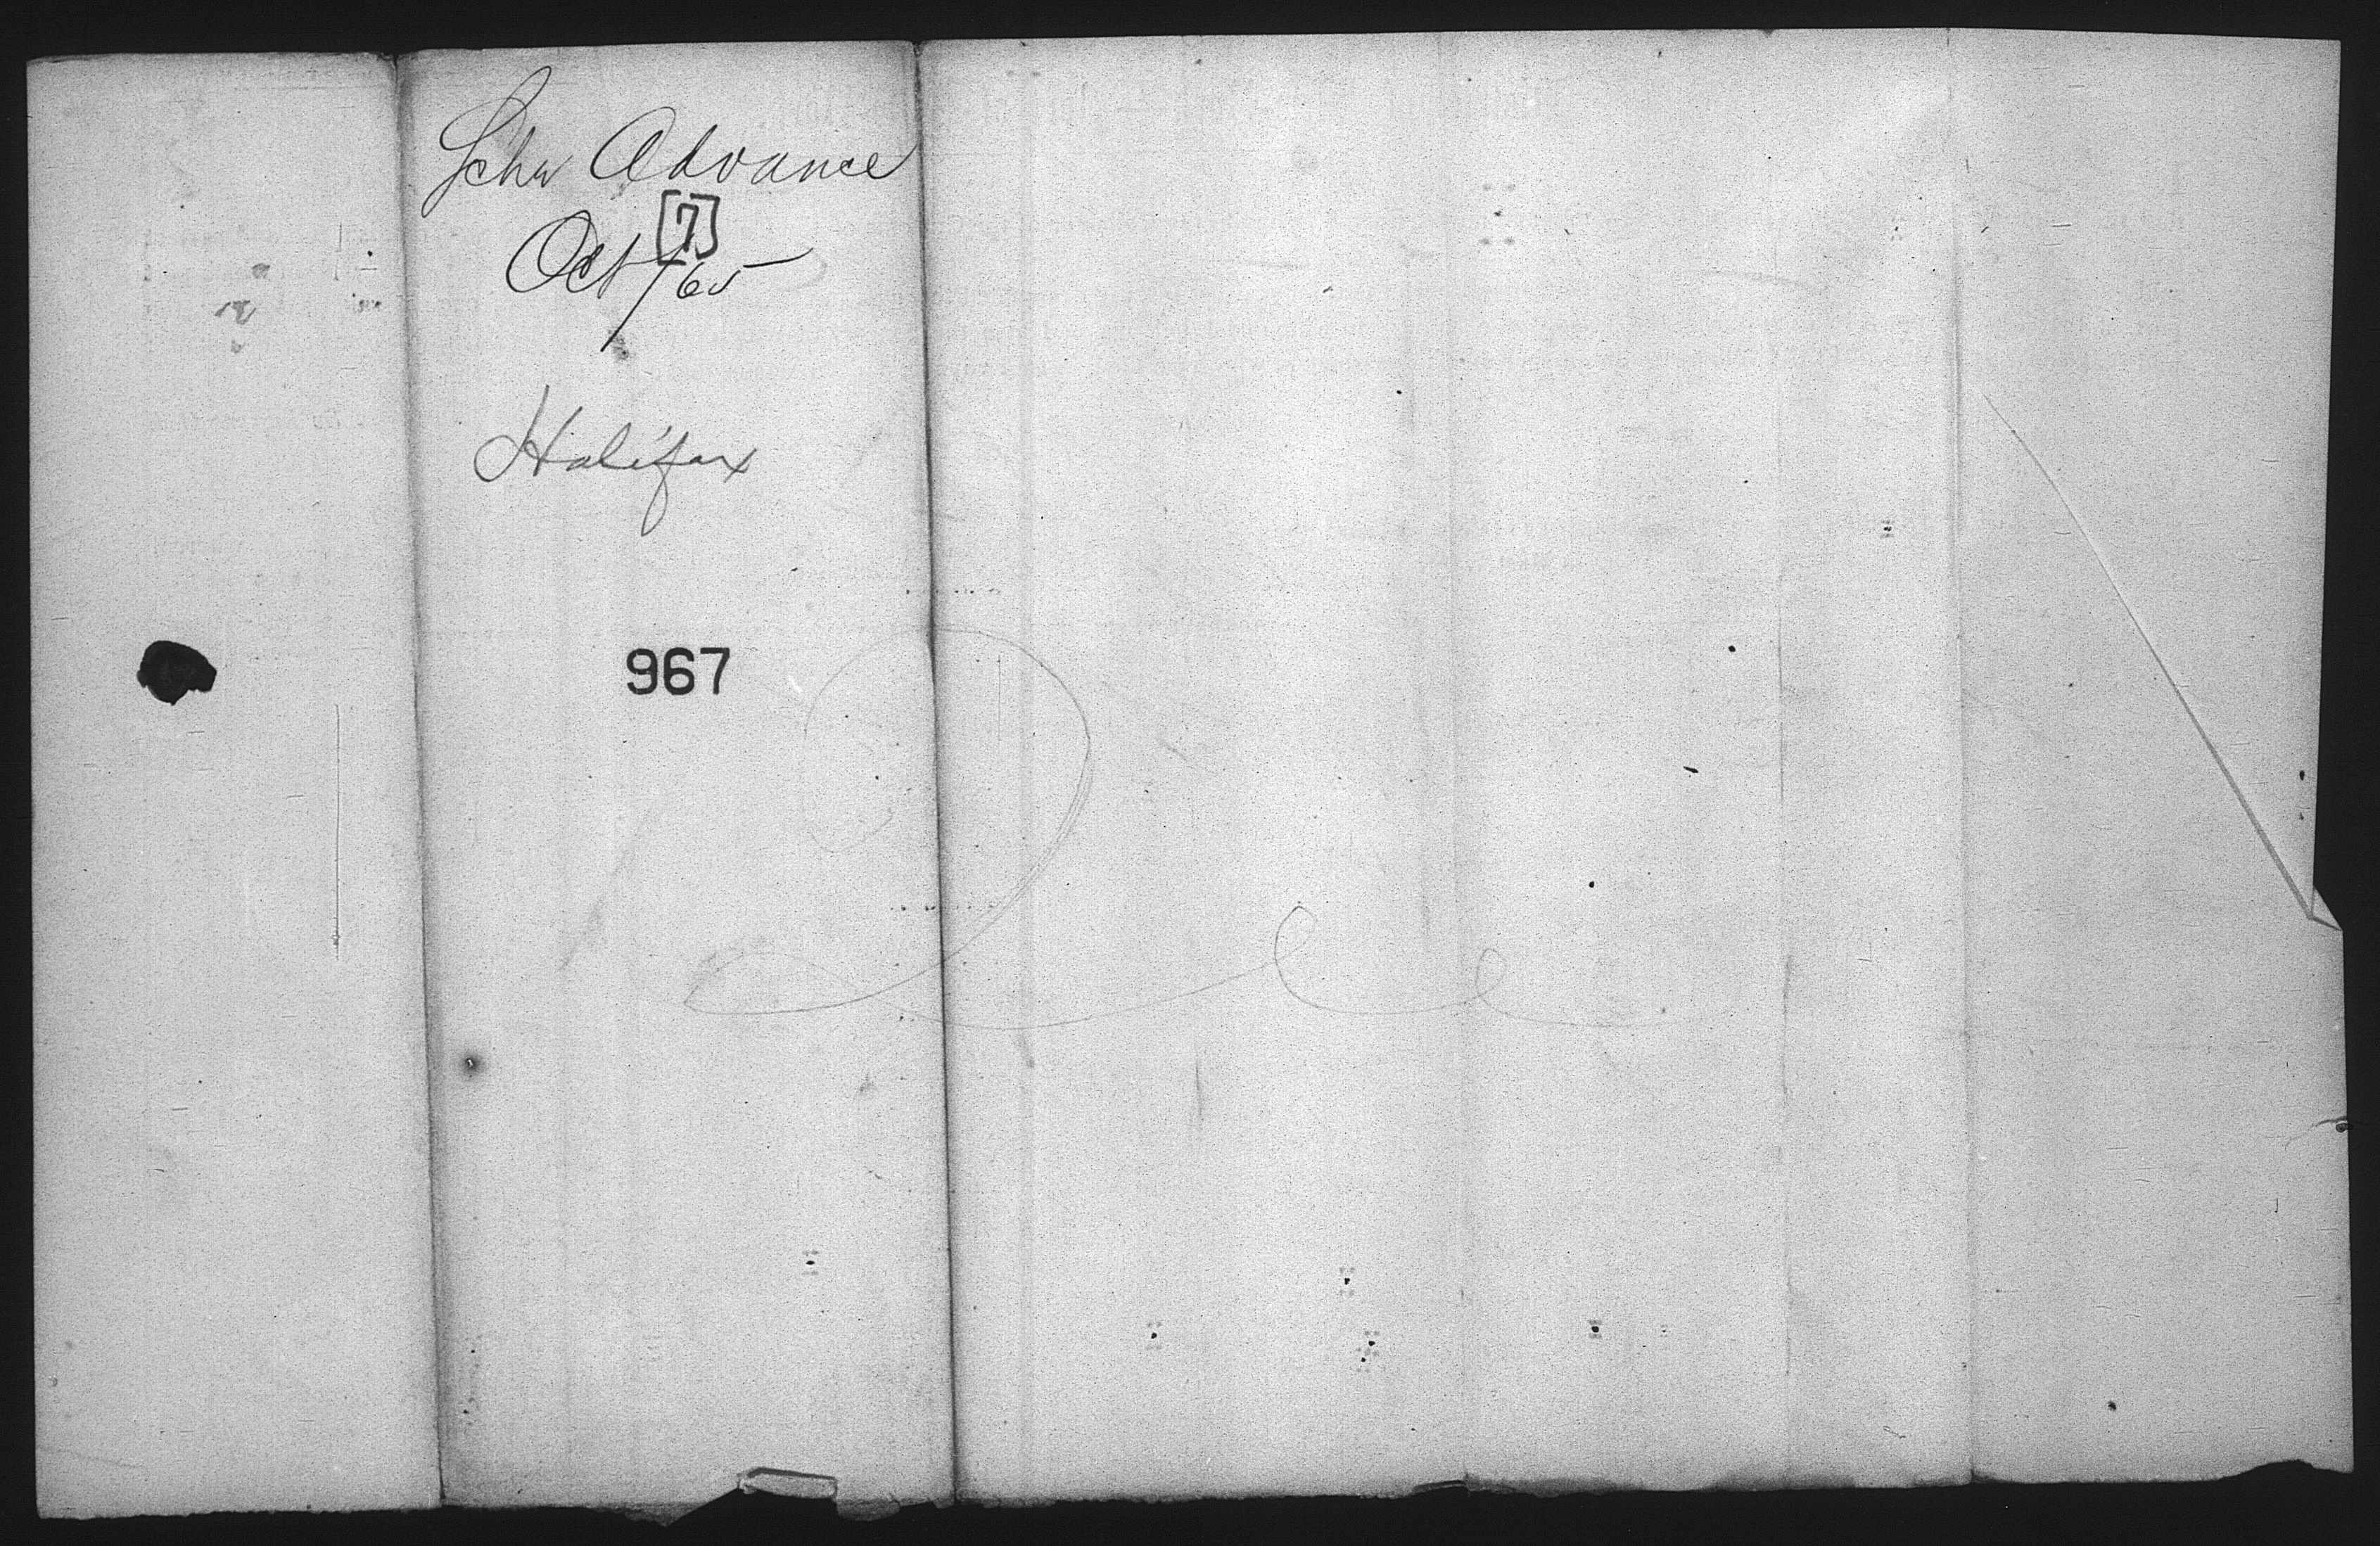 Schr Advance
[7]
Oct /65
Halifax
967